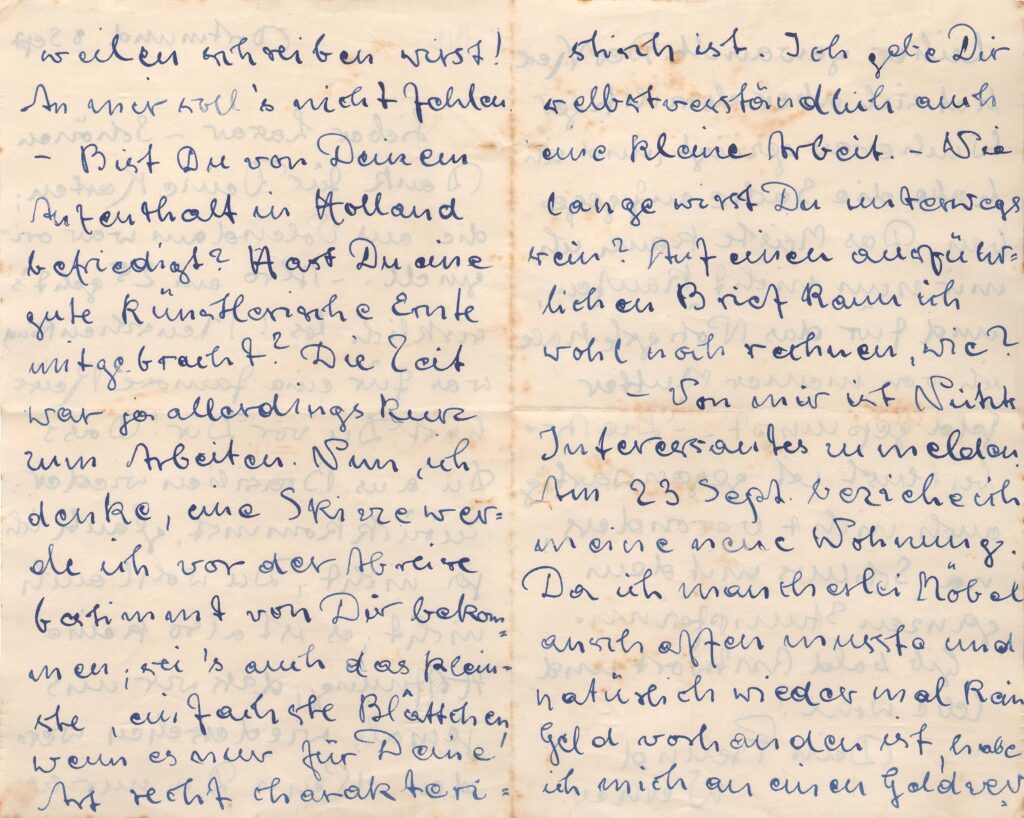 weilen schreiben wirst!
An mir soll's nicht fehlen.
– Bist Du von Deinem
Aufenthalt in Holland
befriedigt? Hast Du eine
gute künstlerische Ernte
mitgebracht? Die Zeit
war ja allerdings kurz
zum Arbeiten. Nun, ich
denke, eine Skizze wer=
de ich vor der Abreise
bestimmt von Dir bekom=
men; sei's auch das klein=
ste, einfachste Blättchen,
wenn es nur für Deine
Art recht charakteri=
stisch ist. Ich gebe Dir
selbstverständlich auch
eine kleine Arbeit. – Wie
lange wirst Du unterwegs
sein? Auf einen ausführ=
lichen Brief kann ich
wohl noch rechnen, wie?
– Von mir ist Nichts
Interessantes zu melden.
Am 23 Sept. beziehe ich
meine neue Wohnung.
Da ich mancherlei Möbel
anschaffen musste und
natürlich wieder mal kein
Geld vorhanden ist, habe
ich mich an einen Geldver